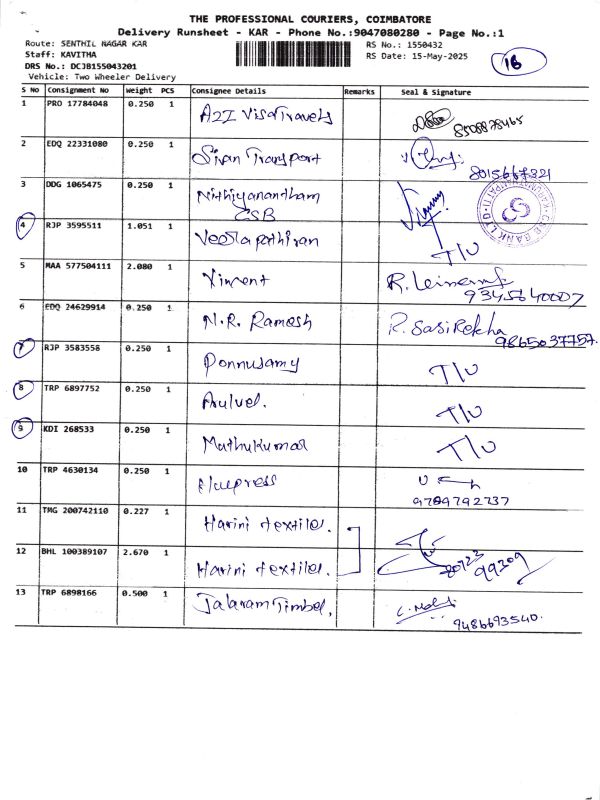 THE PROFESSIONAL COURIERS, COIMBATORE
Delivery Runsheet - KAR - Phone No.:9047080280 - Page No.:1
Route: SENTHIL NAGAR KAR RS No.: 1550432
Staff: KAVITHA RS Date: 15-May-2025 16
DRS No.: DCJB155043201
Vehicle: Two Wheeler Delivery
S No Consignment No Weight PCS Consignee Details Remarks Seal & Signature
1 PRO 17784048 0.250 1 A2I Visa Travels
8508878465
2 EDQ 22331080 0.250 1 Sivan Transport
8015667321
3 DDG 1065475 0.250 1 Nithiyanantham
ESB
4 RJP 3595511 1.051 1 Veerapathiran T/U
5 MAA 577504111 2.080 1 Vincent R.
9345640007
6 EDQ 24629914 0.250 1 N.R. Ramesh R. Sasi Rekha
9865037757
7 RJP 3583558 0.250 1 Ponnusamy T/U
8 TRP 6897752 0.250 1 Arulvel. T/U
9 KDI 268533 0.250 1 Muthukumar T/U
10 TRP 4630134 0.250 1
9789792737
11 TMG 200742110 0.227 1 Harini textiles.
12 BHL 100389107 2.670 1 Harini textiles. 80723 99309
13 TRP 6898166 0.500 1 Jalaram Timber.
9486693540.